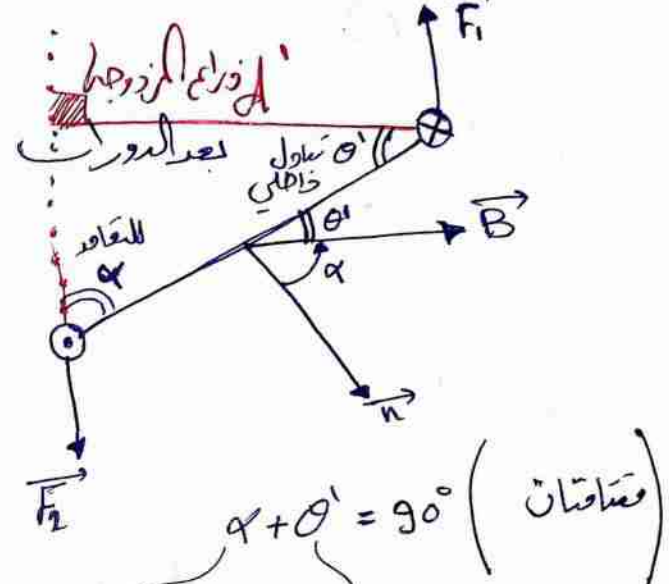 F₁
d' ذراع المزدوجة
بعد الدوران
تبادل θ'
داخلي
θ'
B
للتقاعد
α
α
n
F₂
α + θ' = 90° (متتامتان)